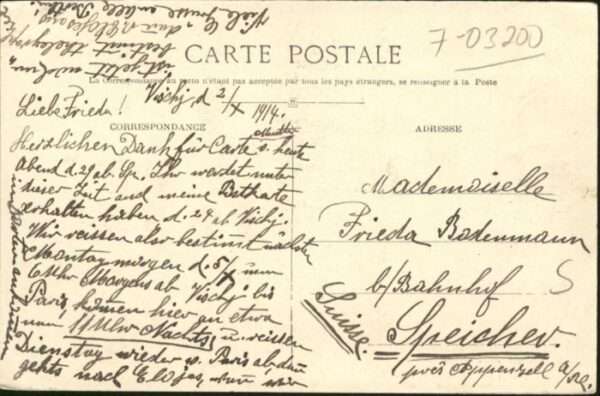 CARTE POSTALE
7-03200
La Correspondance au recto n'étant pas acceptée par tous les pays étrangers, se renseigner à la Poste
Vischy, d 2/X 1914.
Liebe Frieda!
CORRESPONDANCE
ADRESSE
Herzlichen Dank für Carte v. heute
Abend d. 29 ab Sp. Ihr werdet unter
dieser Zeit auch meine Betkarte
erhalten haben d. 27 ab Vischy.
Wir reissen also bestimmt nächsten
Montag morgen d. 5/X um
6 Uhr Morgens ab Vischy bis
Paris, kommen hier an etwa
um 11 Uhr Nachts, u. reissen
Dienstag wieder v. Paris ab, dann
gehts nach
Mademoiselle
Frieda Bodenmann
b/Bahnhof
Speicher.
Suisse.
près Appenzell a/Rh.